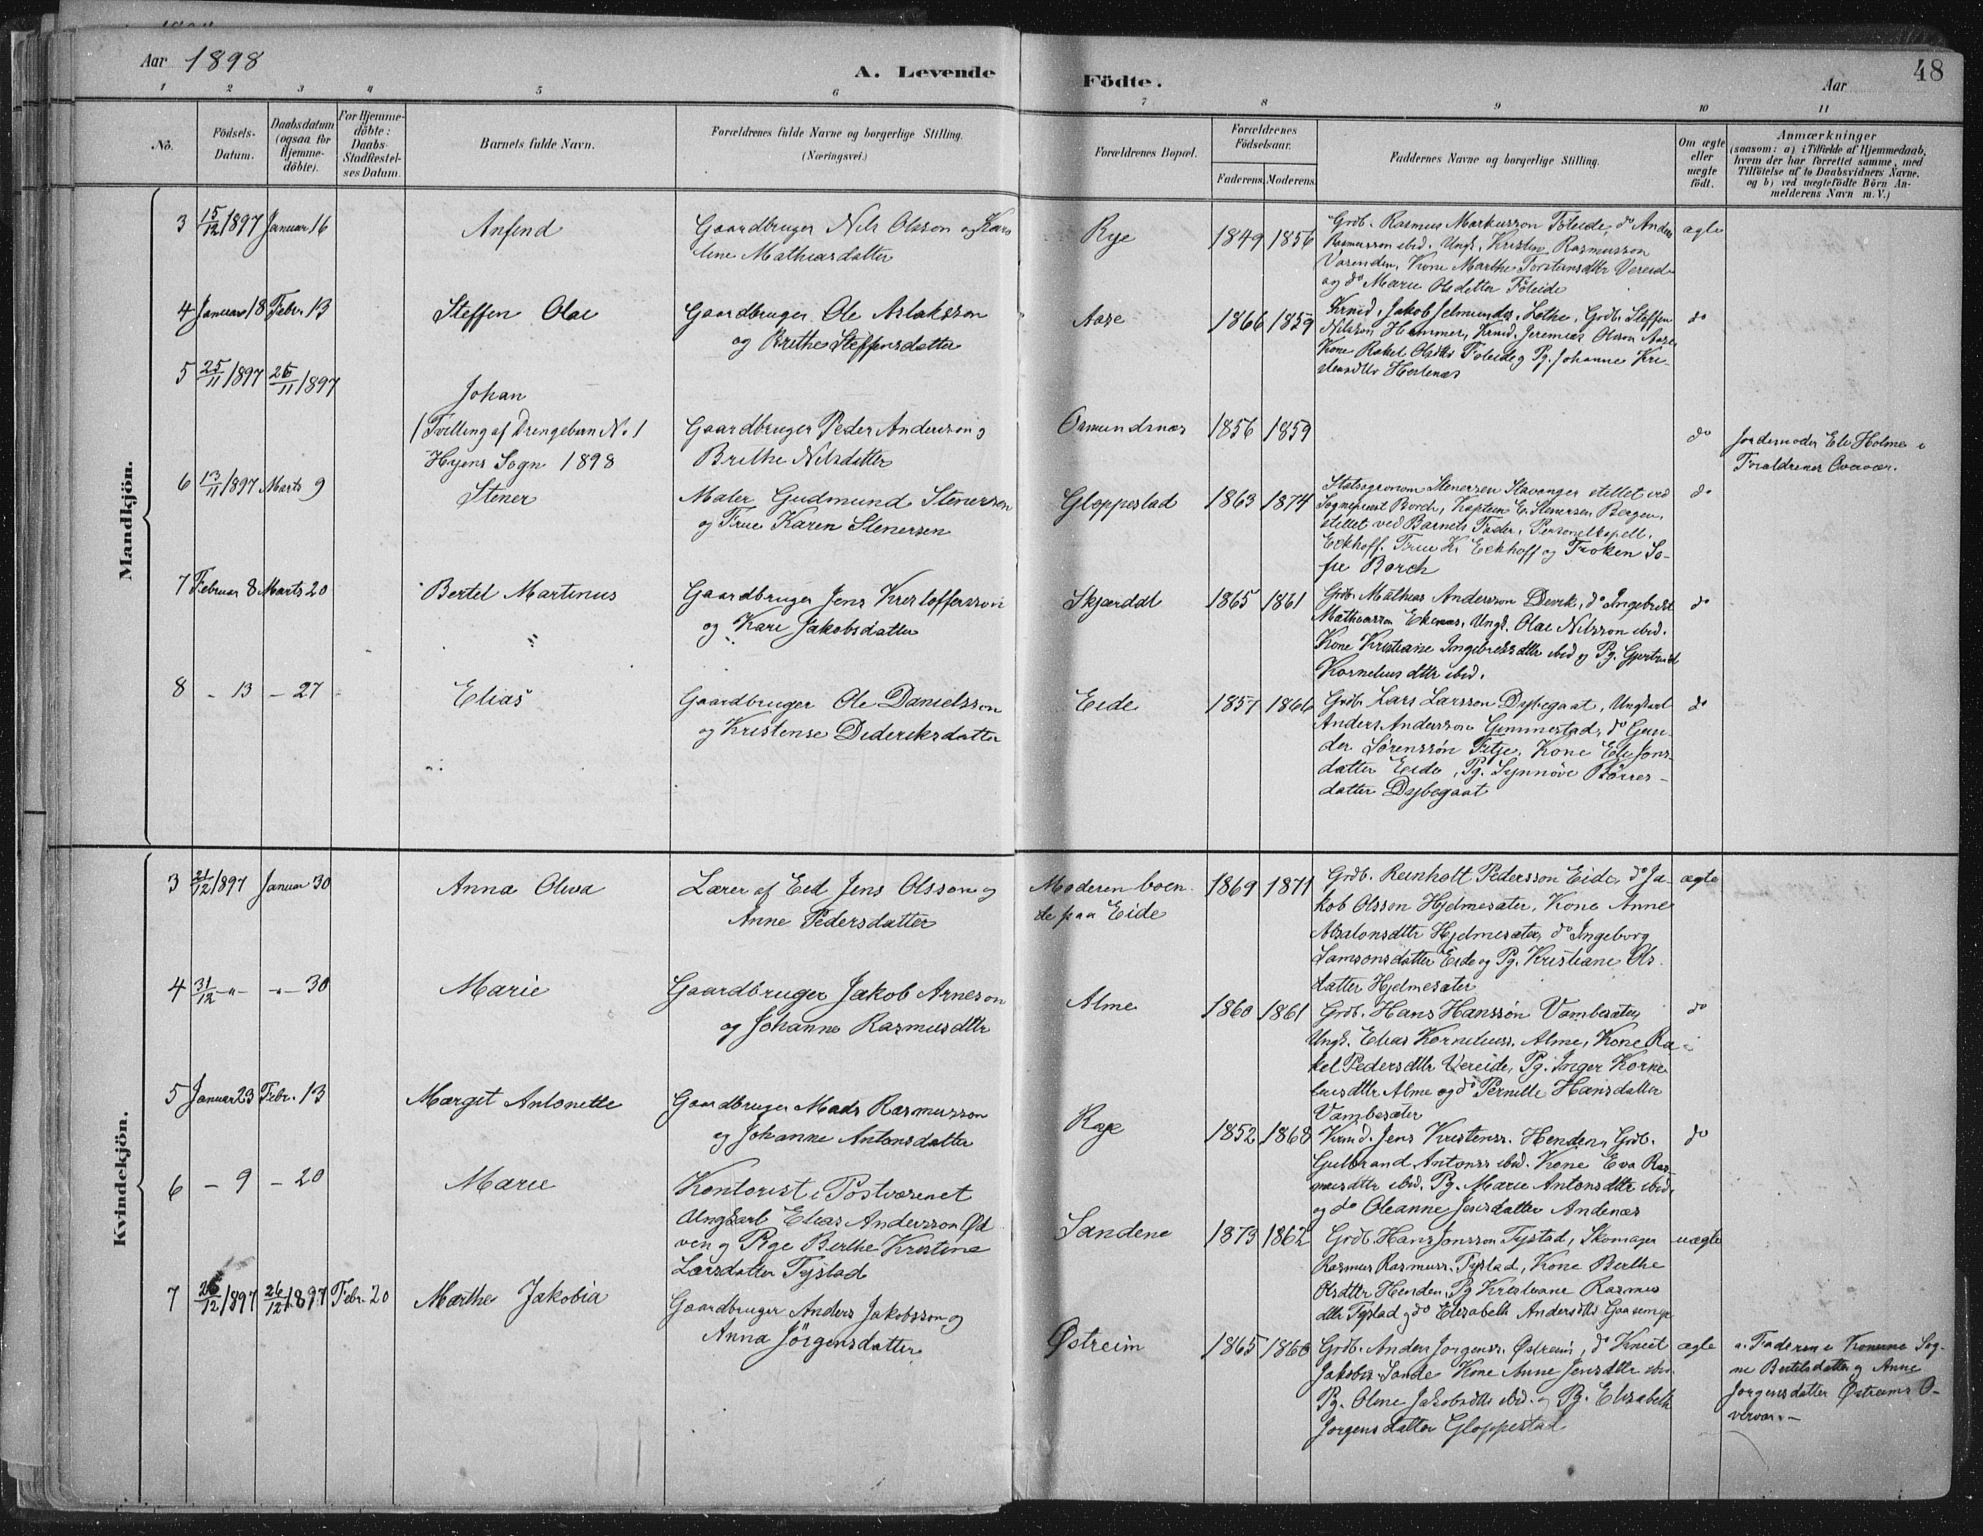 Aar 1898
A. Levende Födte.
Aar
48
1 2 3 4 5 6 7 8 9 10 11
No.
Födsels-Datum.
Daabsdatum (ogsaa for Hjemme-döbte).
For Hjemme-döbte: Daabs-Stadfæstel-ses Datum.
Barnets fulde Navn.
Forældrenes fulde Navne og borgerlige Stilling. (Næringsvei.)
Forældrenes Bopæl.
Forældrenes Födselsaar.
Faderens. Moderens.
Faddernes Navne og borgerlige Stilling.
Om ægte eller uægte födt.
Anmærkninger
(saasom: a) i Tilfælde af Hjemmedaab, hvem der har forrettet samme, med Tilföielse af to Daabsvidners Navne. og b) ved uægtefödte Börn Anmelderens Navn m. V.)
Mandkjön.
3 15/12 1897 Januar 16
Anfind
Gaardbruger Nils Olsson og Kars
tine Mathiasdatter
Rye
1849 1856
Grdb. Rasmus Markusson Föleide, do Anders
Rasmusson ibd. Ungk. Kristen Rasmusson
Varenden, Kone Marthe Torstensdttr Vereide
og do Marie Olsdatter Föleide
ægte
4 Januar 18 Febr. 13
Steffen Olai
Gaardbruger Ole Aslaksson
og Brithe Steffensdatter
Aase
1866 1859
Krmd. Jakob Jetmundss. Lothe, Grdb. Steffen
Nilsson Hammer, Krmd. Jeremias Olsson Aase
Kone Rakel Olsdtr Föleide og Pg. Johanne Kri-
stensdttr Hestenæs
do
5 25/11 1897 26/11 1897
Johan
(Tvilling af Drengebarn No. 1
Hyens Sogn 1898
Gaardbruger Peder Andersson og
Brithe Nilsdatter
Osmundsnæs
1856 1859
do
Jordemoder Eli Holme i
Forældrenes Overvær.
6 13/11 1897 Marts 9
Stener
Maler Gudmund Stenersen
og Frue Karen Stenersen
Gloppestad
1863 1874
Statsagronom Stenersen Stavanger stillet ved
Sognepræst Borch, Kaptein E. Stenersen Bergen,
stillet ved Barnets Fader, Personelkapell.
Eckhoff, Frue K. Eckhoff og Fröken So-
fie Borch
do
7 Februar 8 Marts 20
Bertel Martinus
Gaardbruger Jens Kristoffersson
og Kari Jakobsdatter
Skjærdal
1865 1861
Grdb. Mathias Andersson Devik, do Ingebrikt
Mathiasson Ekenæs, Ungk. Olai Nilsson ibid.
Kone Kristiane Ingebriktsdttr ibid og Pg. Gjertrud
Kornelius dttr ibid.
do
8 - 13 - 27
Elias
Gaardbruger Ole Danielsson
og Kristense Dideriksdatter
Eide
1857 1866
Grdb. Lars Larsson Dybegaat, Ungkarl
Anders Andersson Gimmestad, do Gun-
der Sörenssön Fitje, Kone Eli Jons-
datter Eide, Pg. Synnöve Börres-
datter Dybegaat
do
Kvindekjön.
3 21/12 1897 Januar 30
Anna Oliva
Lærer af Eid Jens Olsson og
Anne Pedersdatter
Moderen boen-
de paa Eide
1869 1871
Grdb. Reinholt Pedersson Eide, do Ja-
kob Olsson Hjelmesæter, Kone Anne
Absalonsdttr Hjelmesæter, do Ingeborg
Samsonsdatter Eide og Pg. Kristiane Ols-
datter Hjelmesæter
ægte
4 31/12 -"- -"- 30
Marie
Gaardbruger Jakob Arneson
og Johanne Rasmusdttr
Alme
1860 1861
Grdb. Hans Hanssön Vambesæter,
Ungk. Elias Korneliuss. Alme, Kone Ra-
kel Pedersdttr Vereide, Pg. Inger Korne
liusdttr Alme og do Pernille Hansdatter
Vambesæter
do
5 Januar 23 Febr. 13
Margit Antonette
Gaardbruger Mads Rasmusson
og Johanne Antonsdatter
Rye
1852 1868
Krmd. Jens Kristenss. Henden, Grdb.
Gulbrand Antonss ibid. Kone Eva Ras-
musdttr ibid. Pg. Marie Antonsdttr ibid.
og do Oleanne Jensdatter Andenæs
do
6 - 9 - 20
Marie
Kontorist i Postvæsenet
Ungkarl Elias Andersson Öd
ven og Pige Berthe Kristine
Larsdatter Tystad
Sandene
1873 1862
Grdb. Hans Jonsson Tystad, Skomager
Rasmus Rasmuss. Tystad, Kone Berthe
Olsdttr Henden, Pg Kristiane Rasmus
dttr Tystad og do Elisabeth Andersdttr
uægte
7 26/12 1897 26/12 1897 Febr. 20
Marthe Jakobia
Gaardbruger Anders Jakobsson og
Anna Jörgensdatter
Østreim
1865 1860
Grdb. Anders Jorgenss. Østreim, do Knut
Jakobss. Sande Kone Anne Jensdttr ibid.
Pg. Oline Jakobsdttr ibid. og Pg. Elisabeth
Jorgensdatter Gloppestad
ægte
a. Faderen i Konerne Sig-
ne Bertelsdatter og Anne
Jorgensdatter Østreims O-
vervær.-